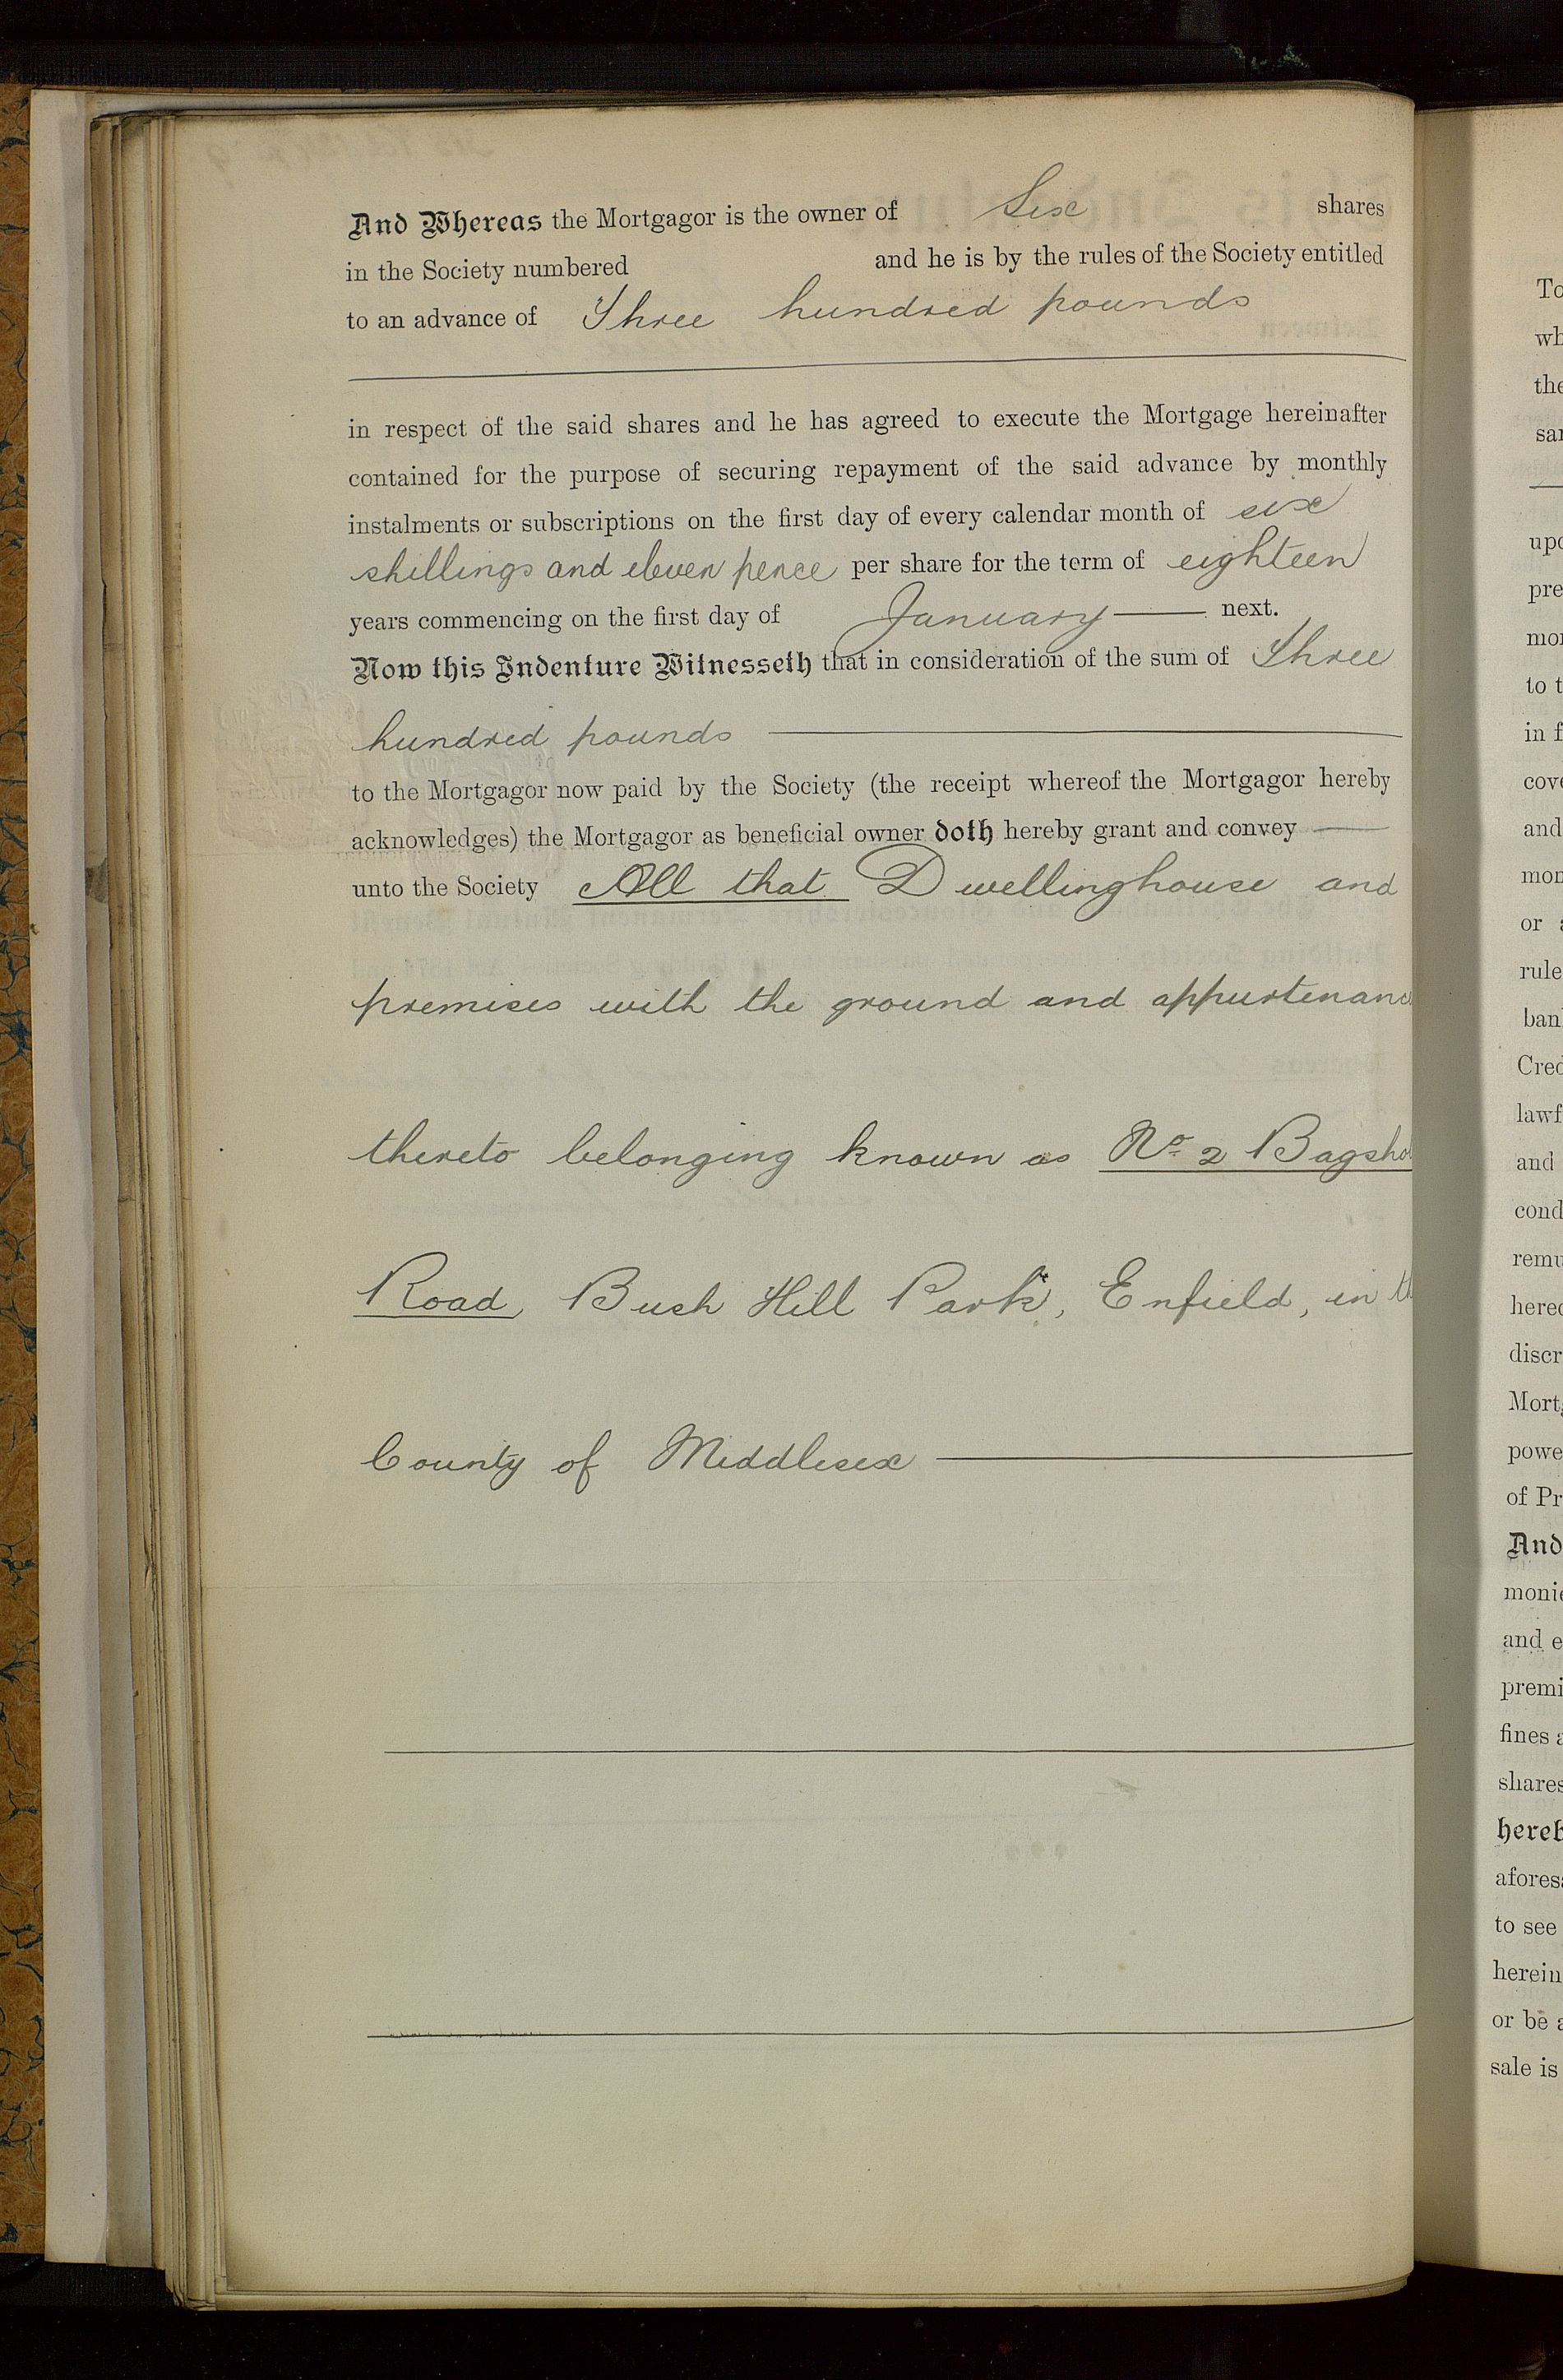 And Whereas the Mortgagor is the owner of Six shares
in the Society numbered and he is by the rules of the Society entitled
to an advance of Three hundred pounds
in respect of the said shares and he has agreed to execute the Mortgage hereinafter
contained for the purpose of securing repayment of the said advance by monthly
instalments or subscriptions on the first day of every calendar month of six
shillings and eleven pence per share for the term of eighteen
years commencing on the first day of January next.
Now this Indenture Witnesseth that in consideration of the sum of Three
hundred pounds
to the Mortgagor now paid by the Society (the receipt whereof the Mortgagor hereby
acknowledges) the Mortgagor as beneficial owner doth hereby grant and convey
unto the Society All that Dwellinghouse and
premises with the ground and appurtenanc
thereto belonging known as No. 2 Bagsho
Road, Bush Hill Park, Enfield, in th
County of Middlesex
To
wh
the
sa
upo
pre
mo
to t
in f
cove
and
mor
or a
rule
ban
Cred
lawf
and
cond
remu
hered
discr
Mort
powe
of Pr
And
monie
and e
premi
fines a
shares
hereb
afores
to see
herein
or be a
sale is